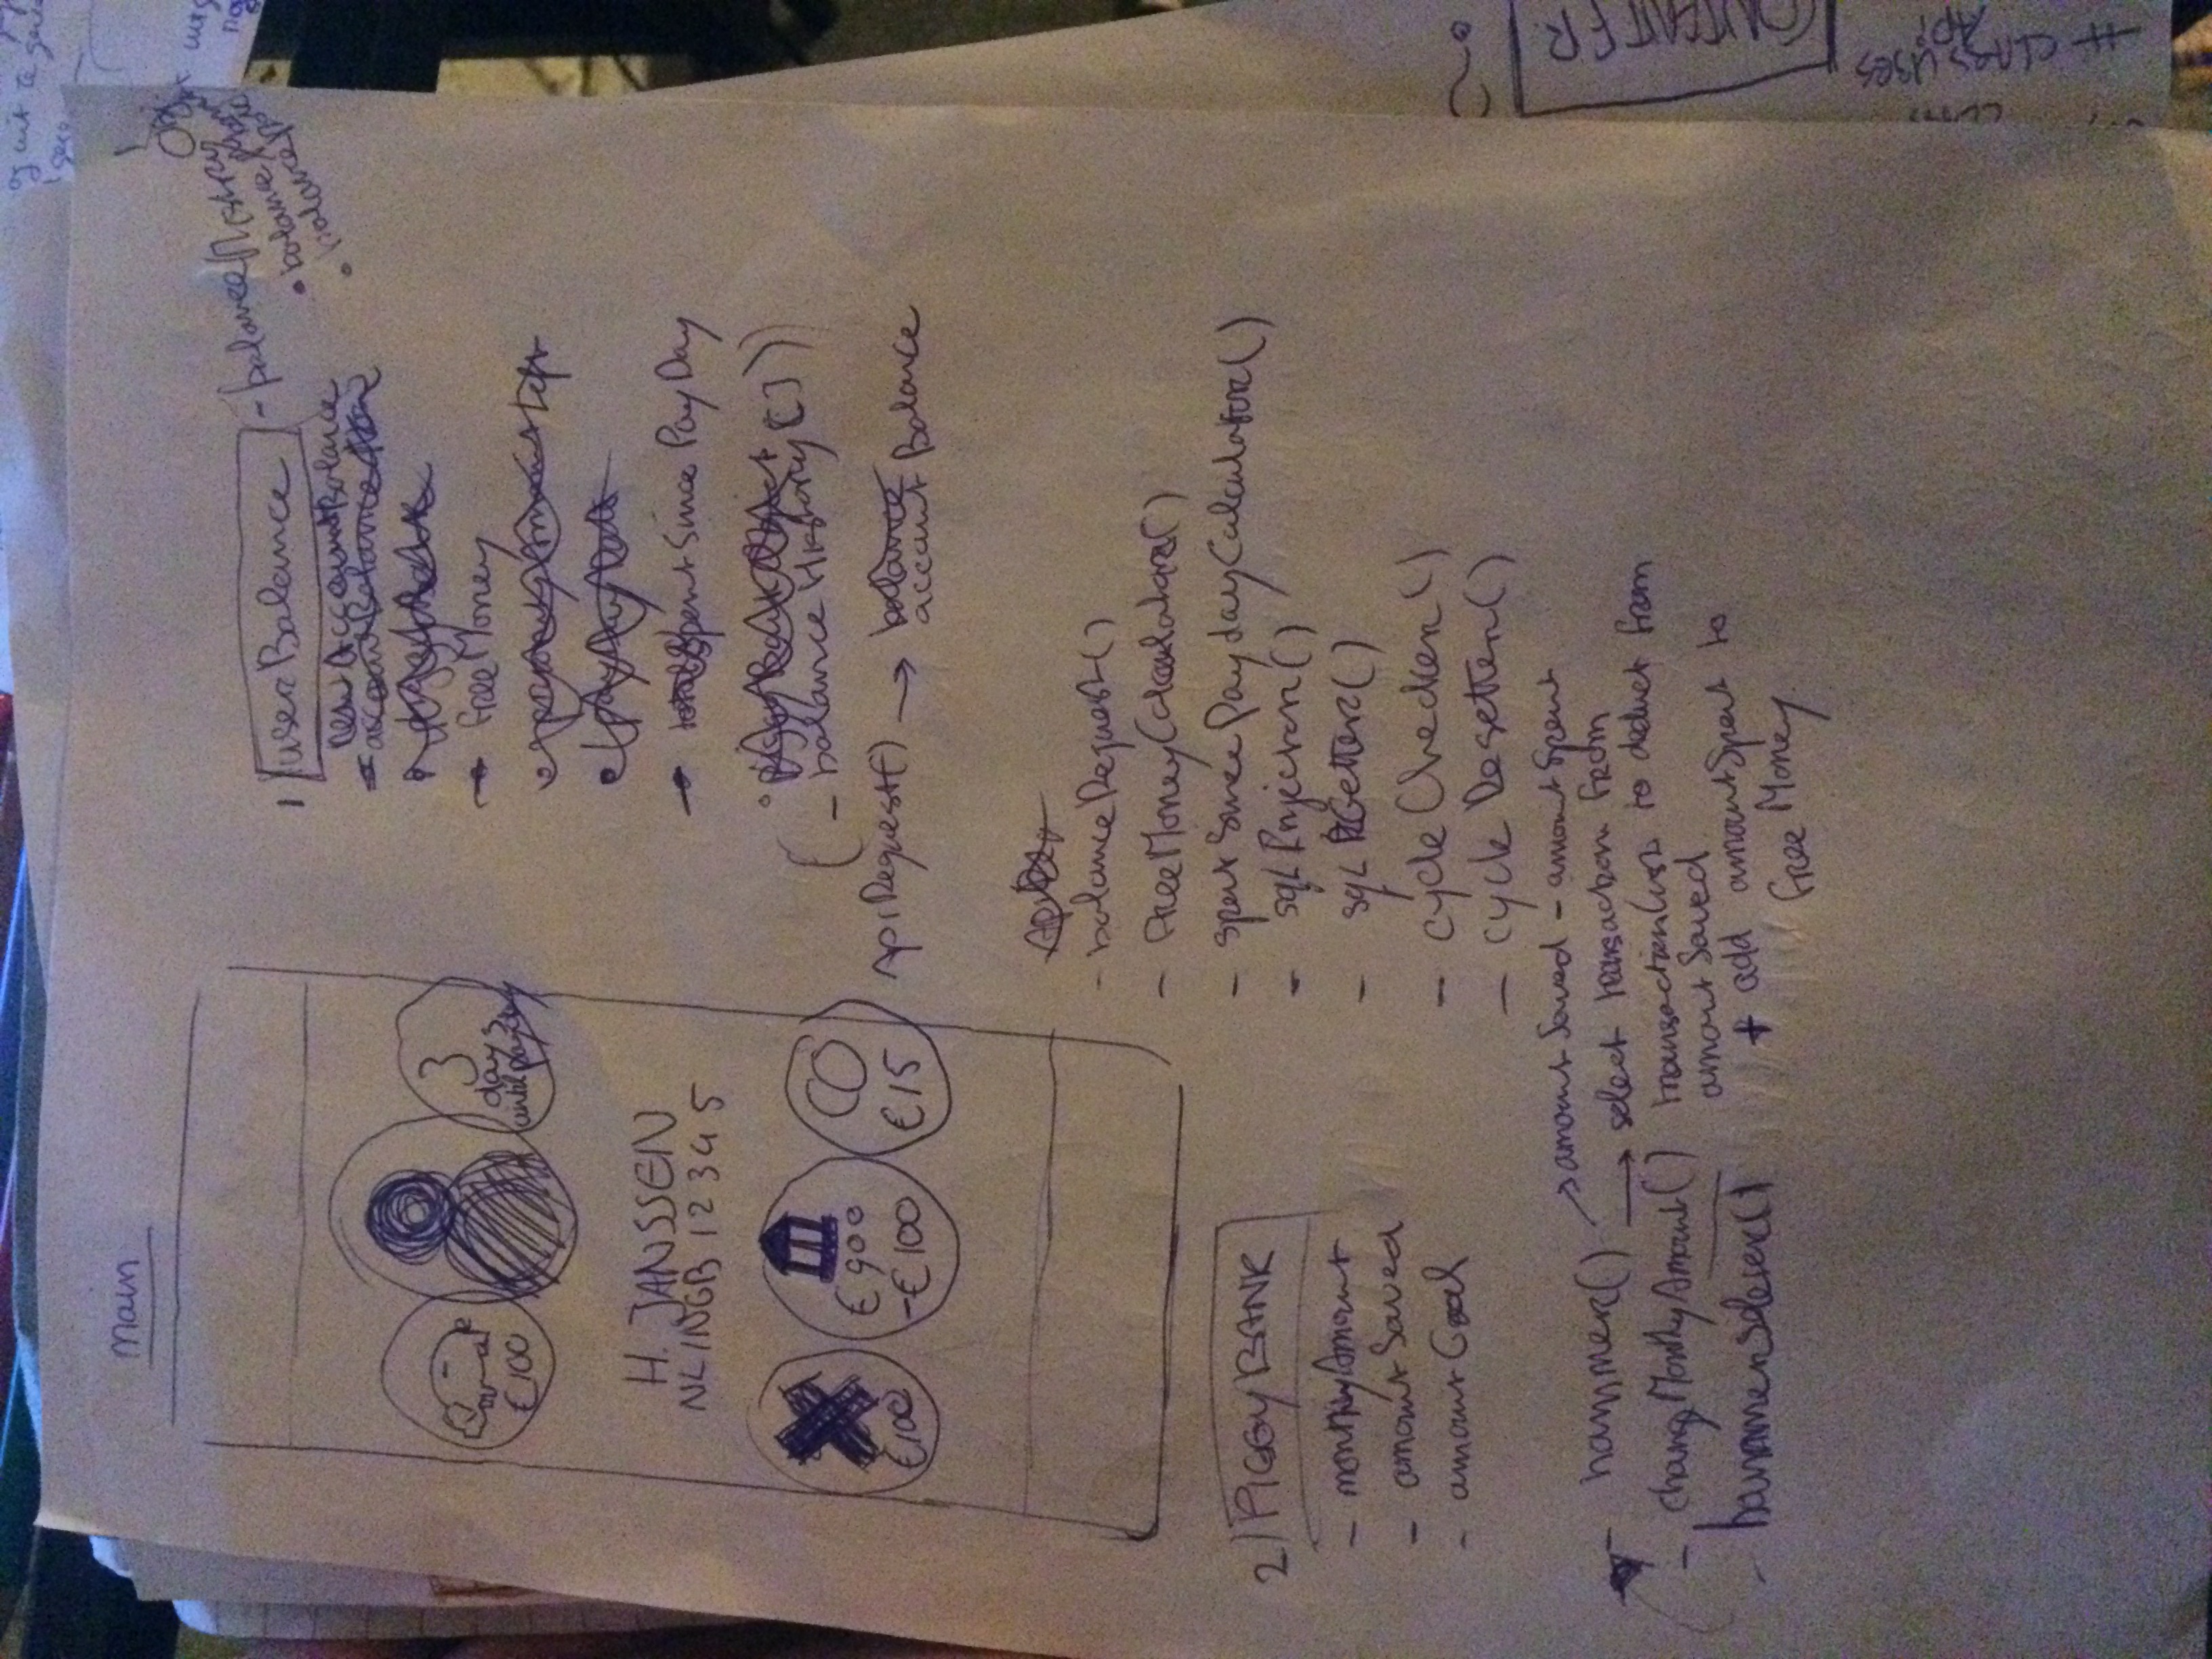 main
€100
3
days
until payday
H. JANSSEN
NL1INGB 12345
€100
€900
-€100
€15
1 userBalance
- balanceHistory
• balance
• balance
new AccountBalance
accountBalance
- freeMoney
priority Amount Left
payDayDate
- total SpentSince PayDay
piggyBank Object
( - balance History [ ] )
ApiRequest() → balance
account Balance
- balanceRequest()
- freeMoneyCalculator()
- spentSincePaydayCalculator()
- sqlInjector()
- sqlGetter()
- cycleChecker()
- cycleResetter()
2) PIGGYBANK
- monthlyAmount
- amountSaved
- amountGoal
- hammer()
→ amountSaved - amountSpent
→ select transaction from
transactionlist to deduct from
amountSaved
+ add amountSpent to
freeMoney
- changeMonthlyAmount()
- hammerSelecter()
?
API